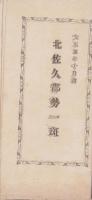 大正五年十月調
北佐久郡勢一斑